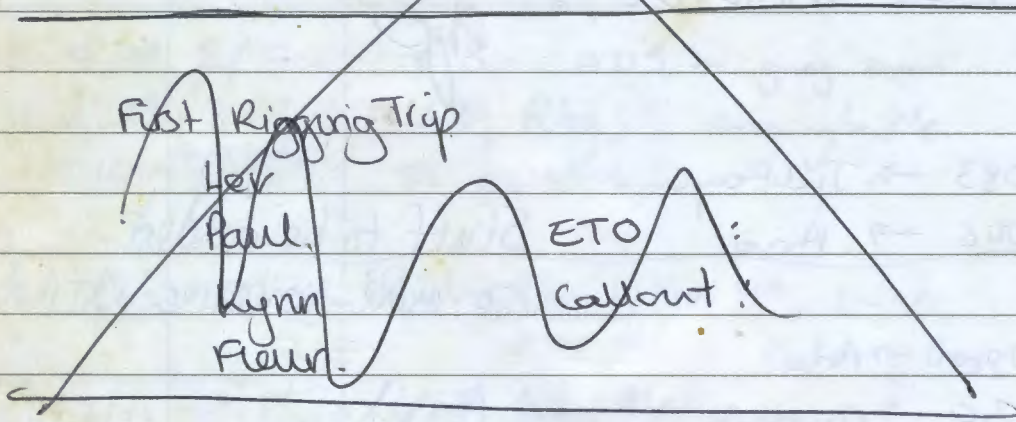 First Rigging Trip
Lev
Paul.
Lynn
Fleur.
ETO
Callout!